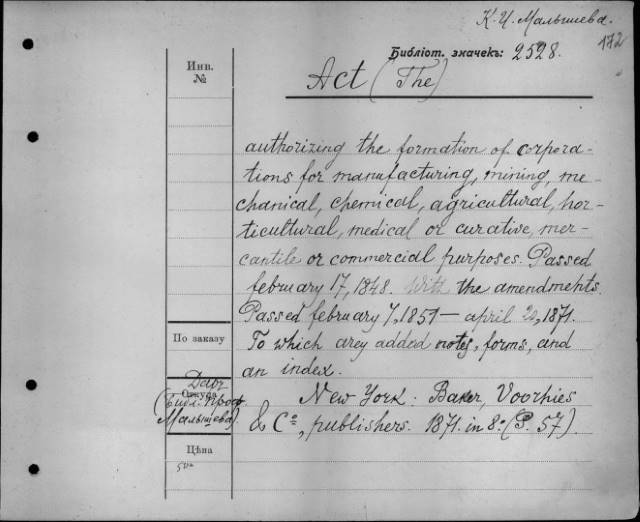 К. И. Малышева.
172
Библіот. значекъ: 2528.
Инв.
№
Act (The)
authorizing the formation of corpora-
tions for manufacturing, mining, me-
chanical, chemical, agricultural, hor-
ticultural, medical or curative, mer-
cantile or commercial purposes. Passed
february 17, 1848. With the amendments.
Passed february 7, 1851 — april 20, 1871.
По заказу
To which arey added notes, forms, and
an index.
Даръ
Откуда
(Библ. Проф.
Малышева)
New York. Baker, Voorhies
& Cº, publishers. 1871. in 8º (P. 57).
Цѣна